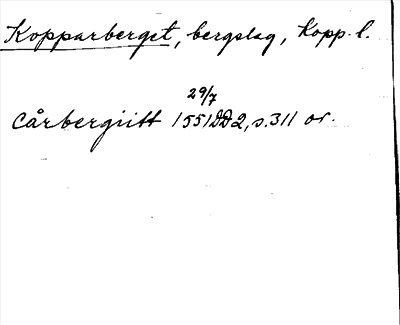 Kopparberget, bergslag, Kopp. l.
29/7
Cårbergiitt 1551 DD2, s. 311 or.